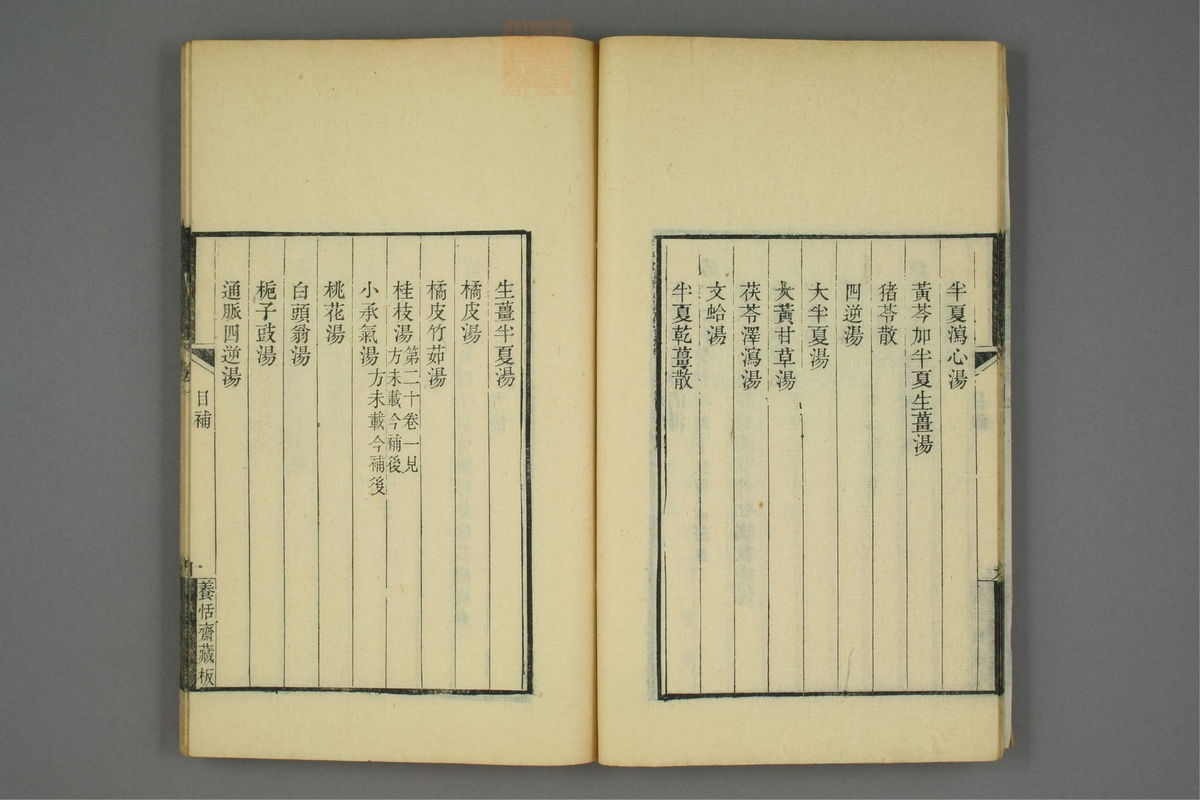 半夏瀉心湯
黃芩加半夏生薑湯
猪苓散
四逆湯
大半夏湯
大黃甘草湯
茯苓澤瀉湯
文蛤湯
半夏乾薑散
生薑半夏湯
橘皮湯
橘皮竹茹湯
桂枝湯 第二十卷一見方未載今補後
小承氣湯 方未載今補後
桃花湯
白頭翁湯
梔子豉湯
通脈四逆湯
目補
養恬齋藏板